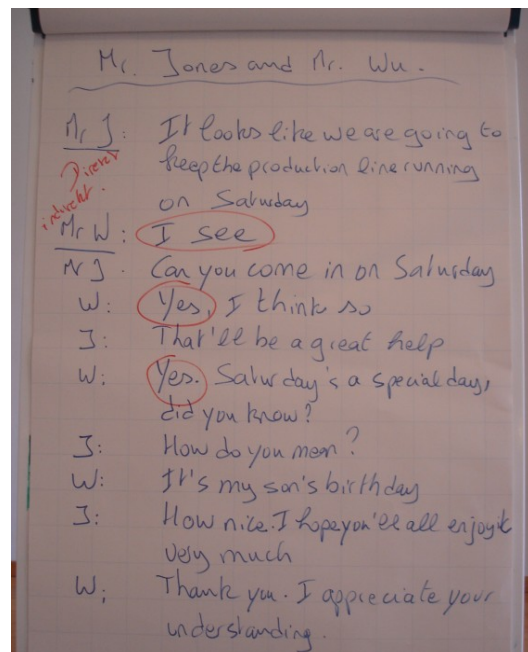 Mr. Jones and Mr. Wu.
Mr J: It looks like we are going to
Direct
keep the production line running
indirect.
on Saturday
Mr W: I see
Mr J. Can you come in on Saturday
W: Yes, I think so
J: That'll be a great help
W: Yes. Saturday's a special day,
did you know?
J: How do you mean?
W: It's my son's birthday
J: How nice. I hope you'll all enjoy it
very much
W; Thank you. I appreciate your
understanding.